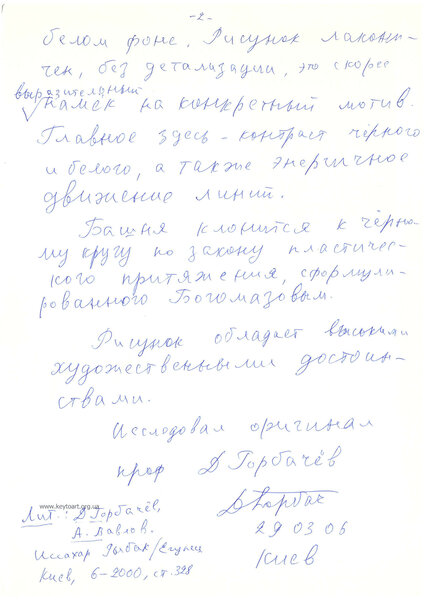 -2-
белом фоне. Рисунок лакони-
чен, без детализации, это скорее
выразительный
намек на конкретный мотив.
Главное здесь - контраст чёрного
и белого, а также энергичное
движение линий.
Башня клонится к чёрно-
му кругу по закону пластичес-
кого притяжения, сформули-
рованного Богомазовым.
Рисунок обладает высокими
художественными достоин-
ствами.
Исследовал оригинал
проф Д Горбачёв
www.keytoart.org.ua
Лит.: Д Горбачёв,
А. Павлов.
Иссахар Рыбак/Егупец
Киев, 6-2000, ст. 328
ДГорбач
29 03 06
Киев